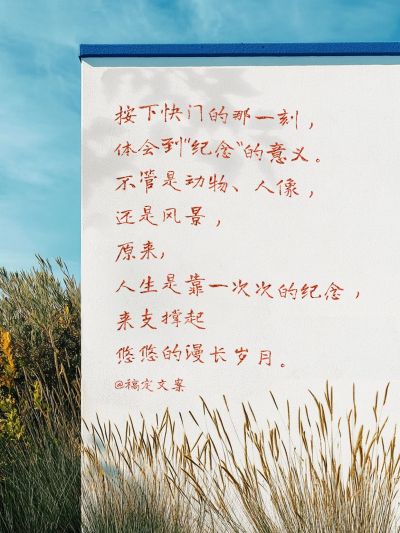 按下快门的那一刻，
体会到“纪念”的意义。
不管是动物、人像，
还是风景，
原来，
人生是靠一次次的纪念，
来支撑起
悠悠的漫长岁月。
@稿定文案